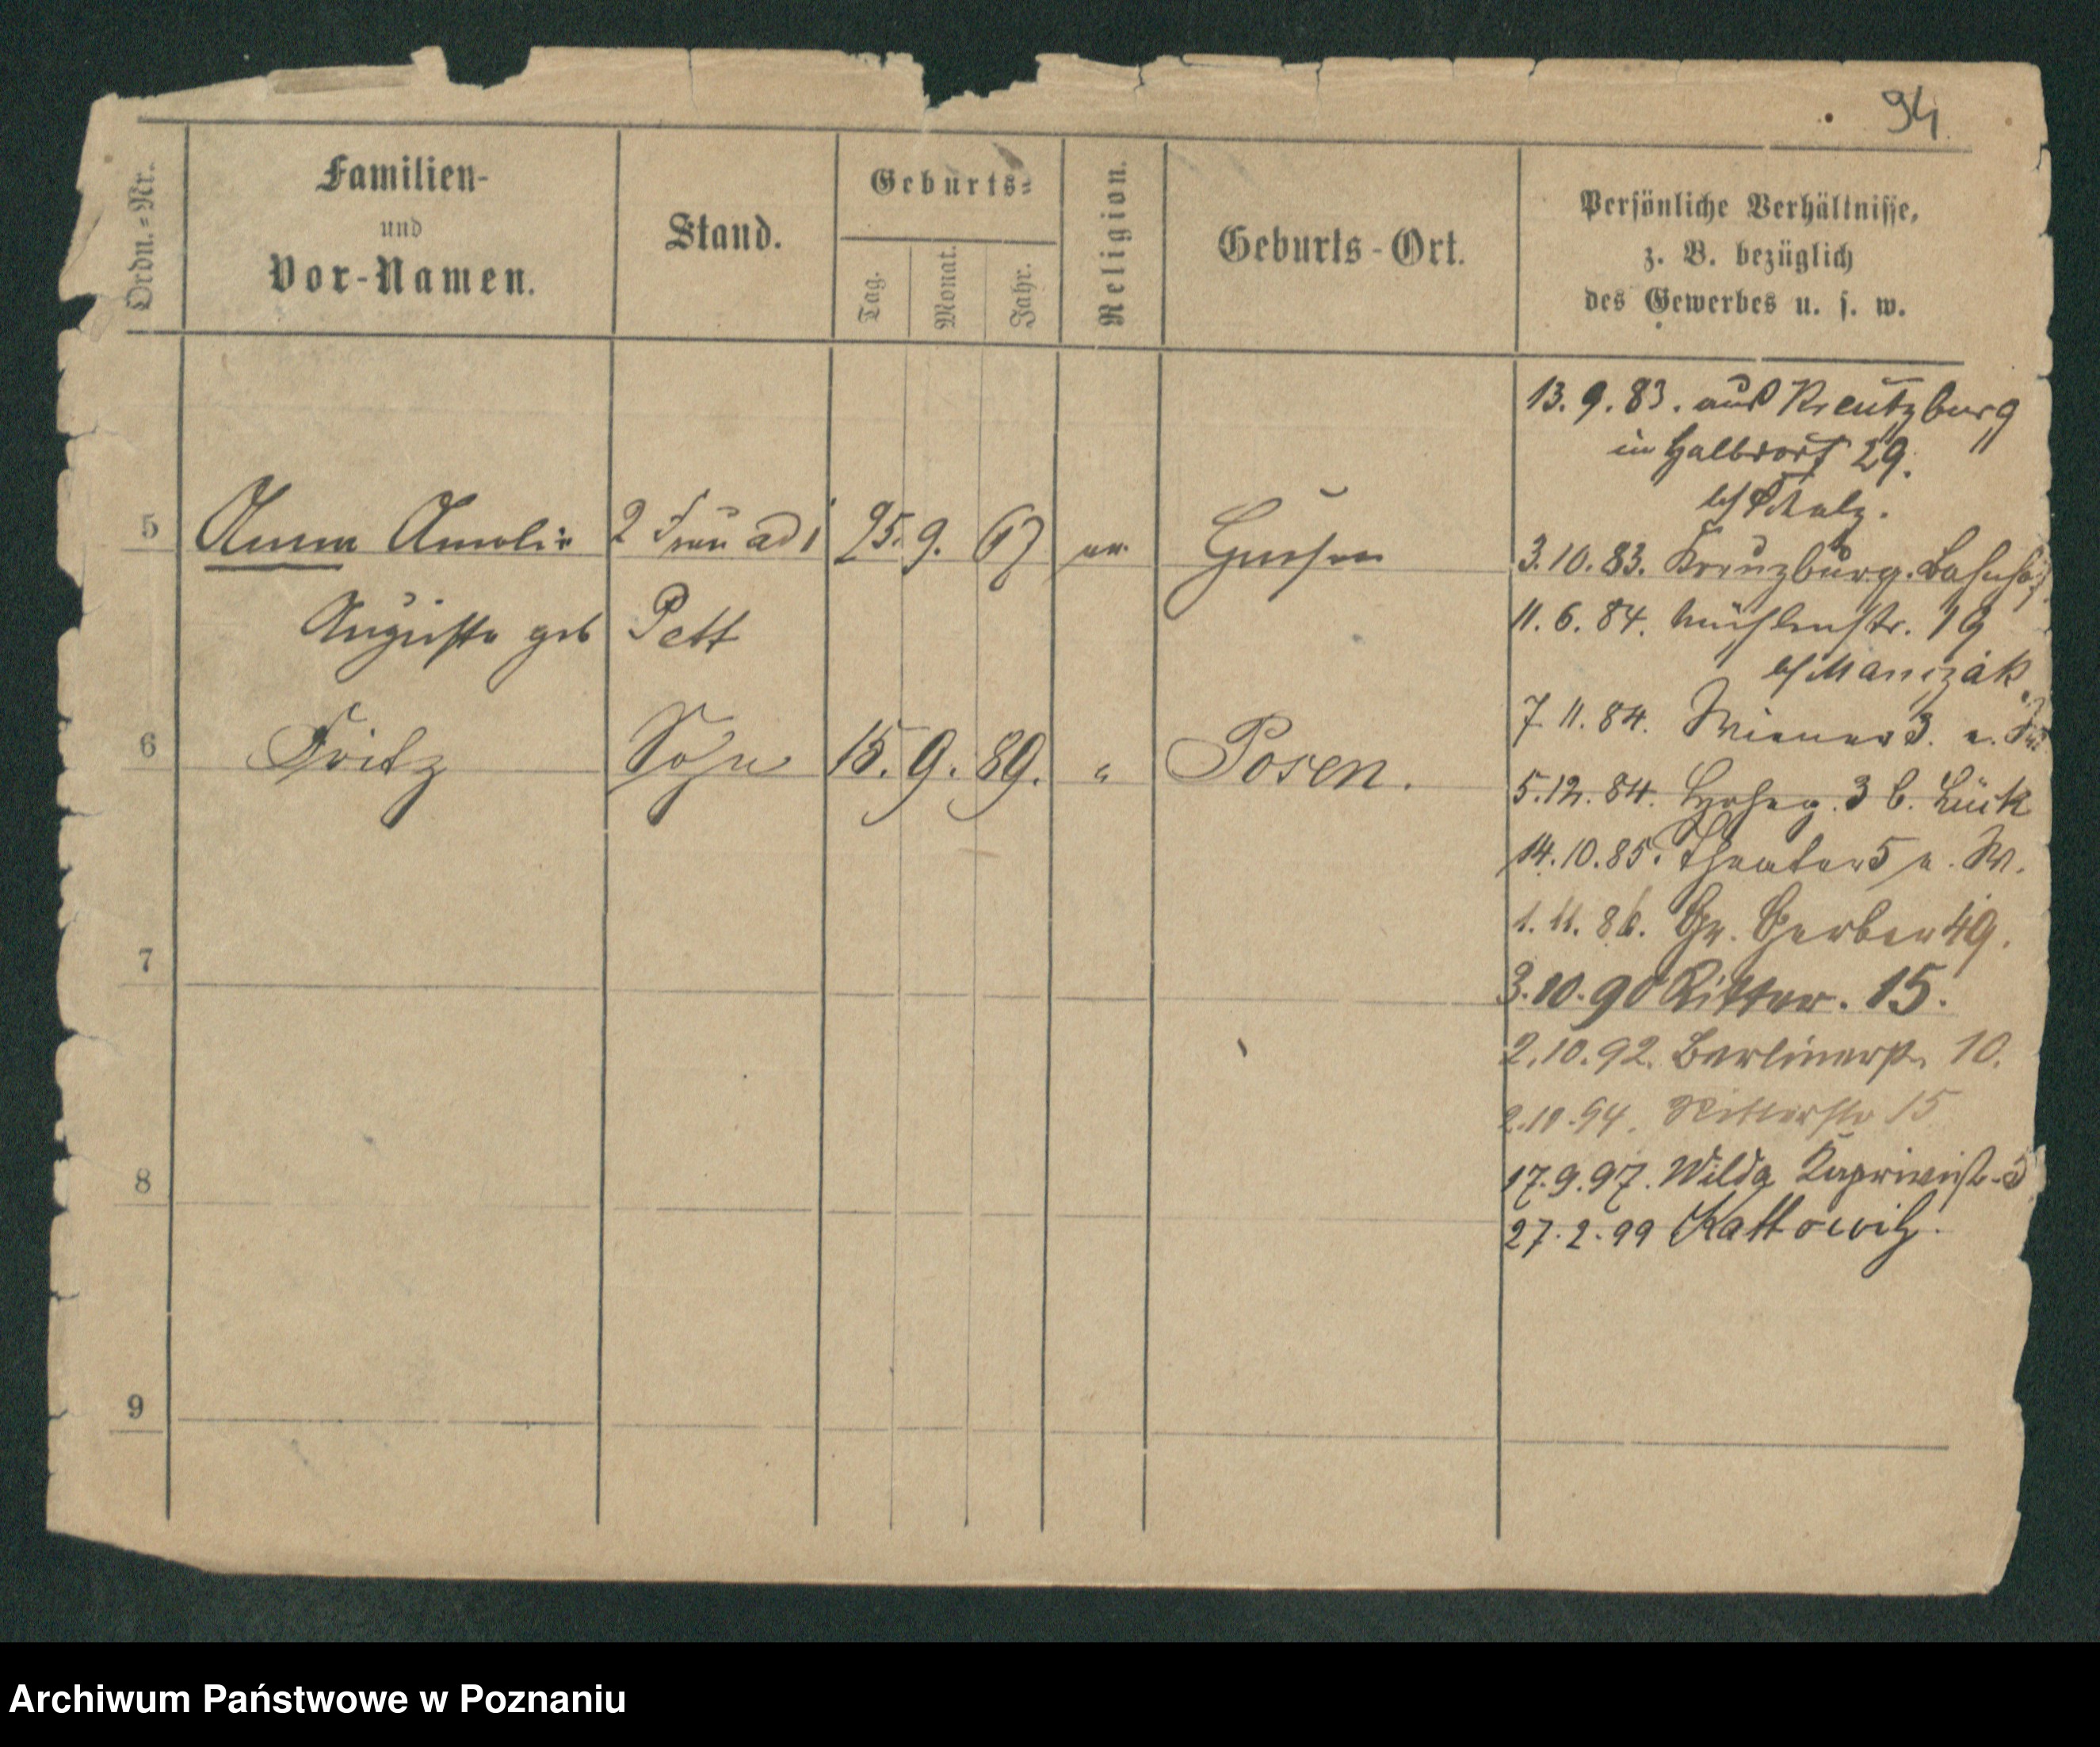 94
Ordn.-Nr.
Familien-
und
Vor-Namen.
Stand.
Geburts-
Tag.
Monat.
Jahr.
Religion.
Geburts-Ort.
Persönliche Verhältnisse,
z. B. bezüglich
des Gewerbes u. s. w.
13. 9. 83. aus Kreutzburg
in Halbdorf 29.
5 Anna Amalie 2 Frau ad 1 25. 9. 67 ev. Gnesen
Auguste geb Pett
3. 10. 83. Kreuzburg. Bahnhof
11. 6. 84. Mühlenstr. 19
b/ Manczak
7 11. 84. Wiener 3.
6 Fritz Sohn 15. 9. 89. " Posen.
5. 12. 84. 3 b. Lück
14. 10. 85. Theater 5 W.
1. 11. 86. Gr. Gerber 49.
7
3. 10. 90 Ritter. 15.
2. 10. 92. Berlinerstr. 10.
2. 10. 94. Ritterstr 15
8
17. 9. 97. Wilda
27. 2. 99 Kattowitz.
9
Archiwum Państwowe w Poznaniu